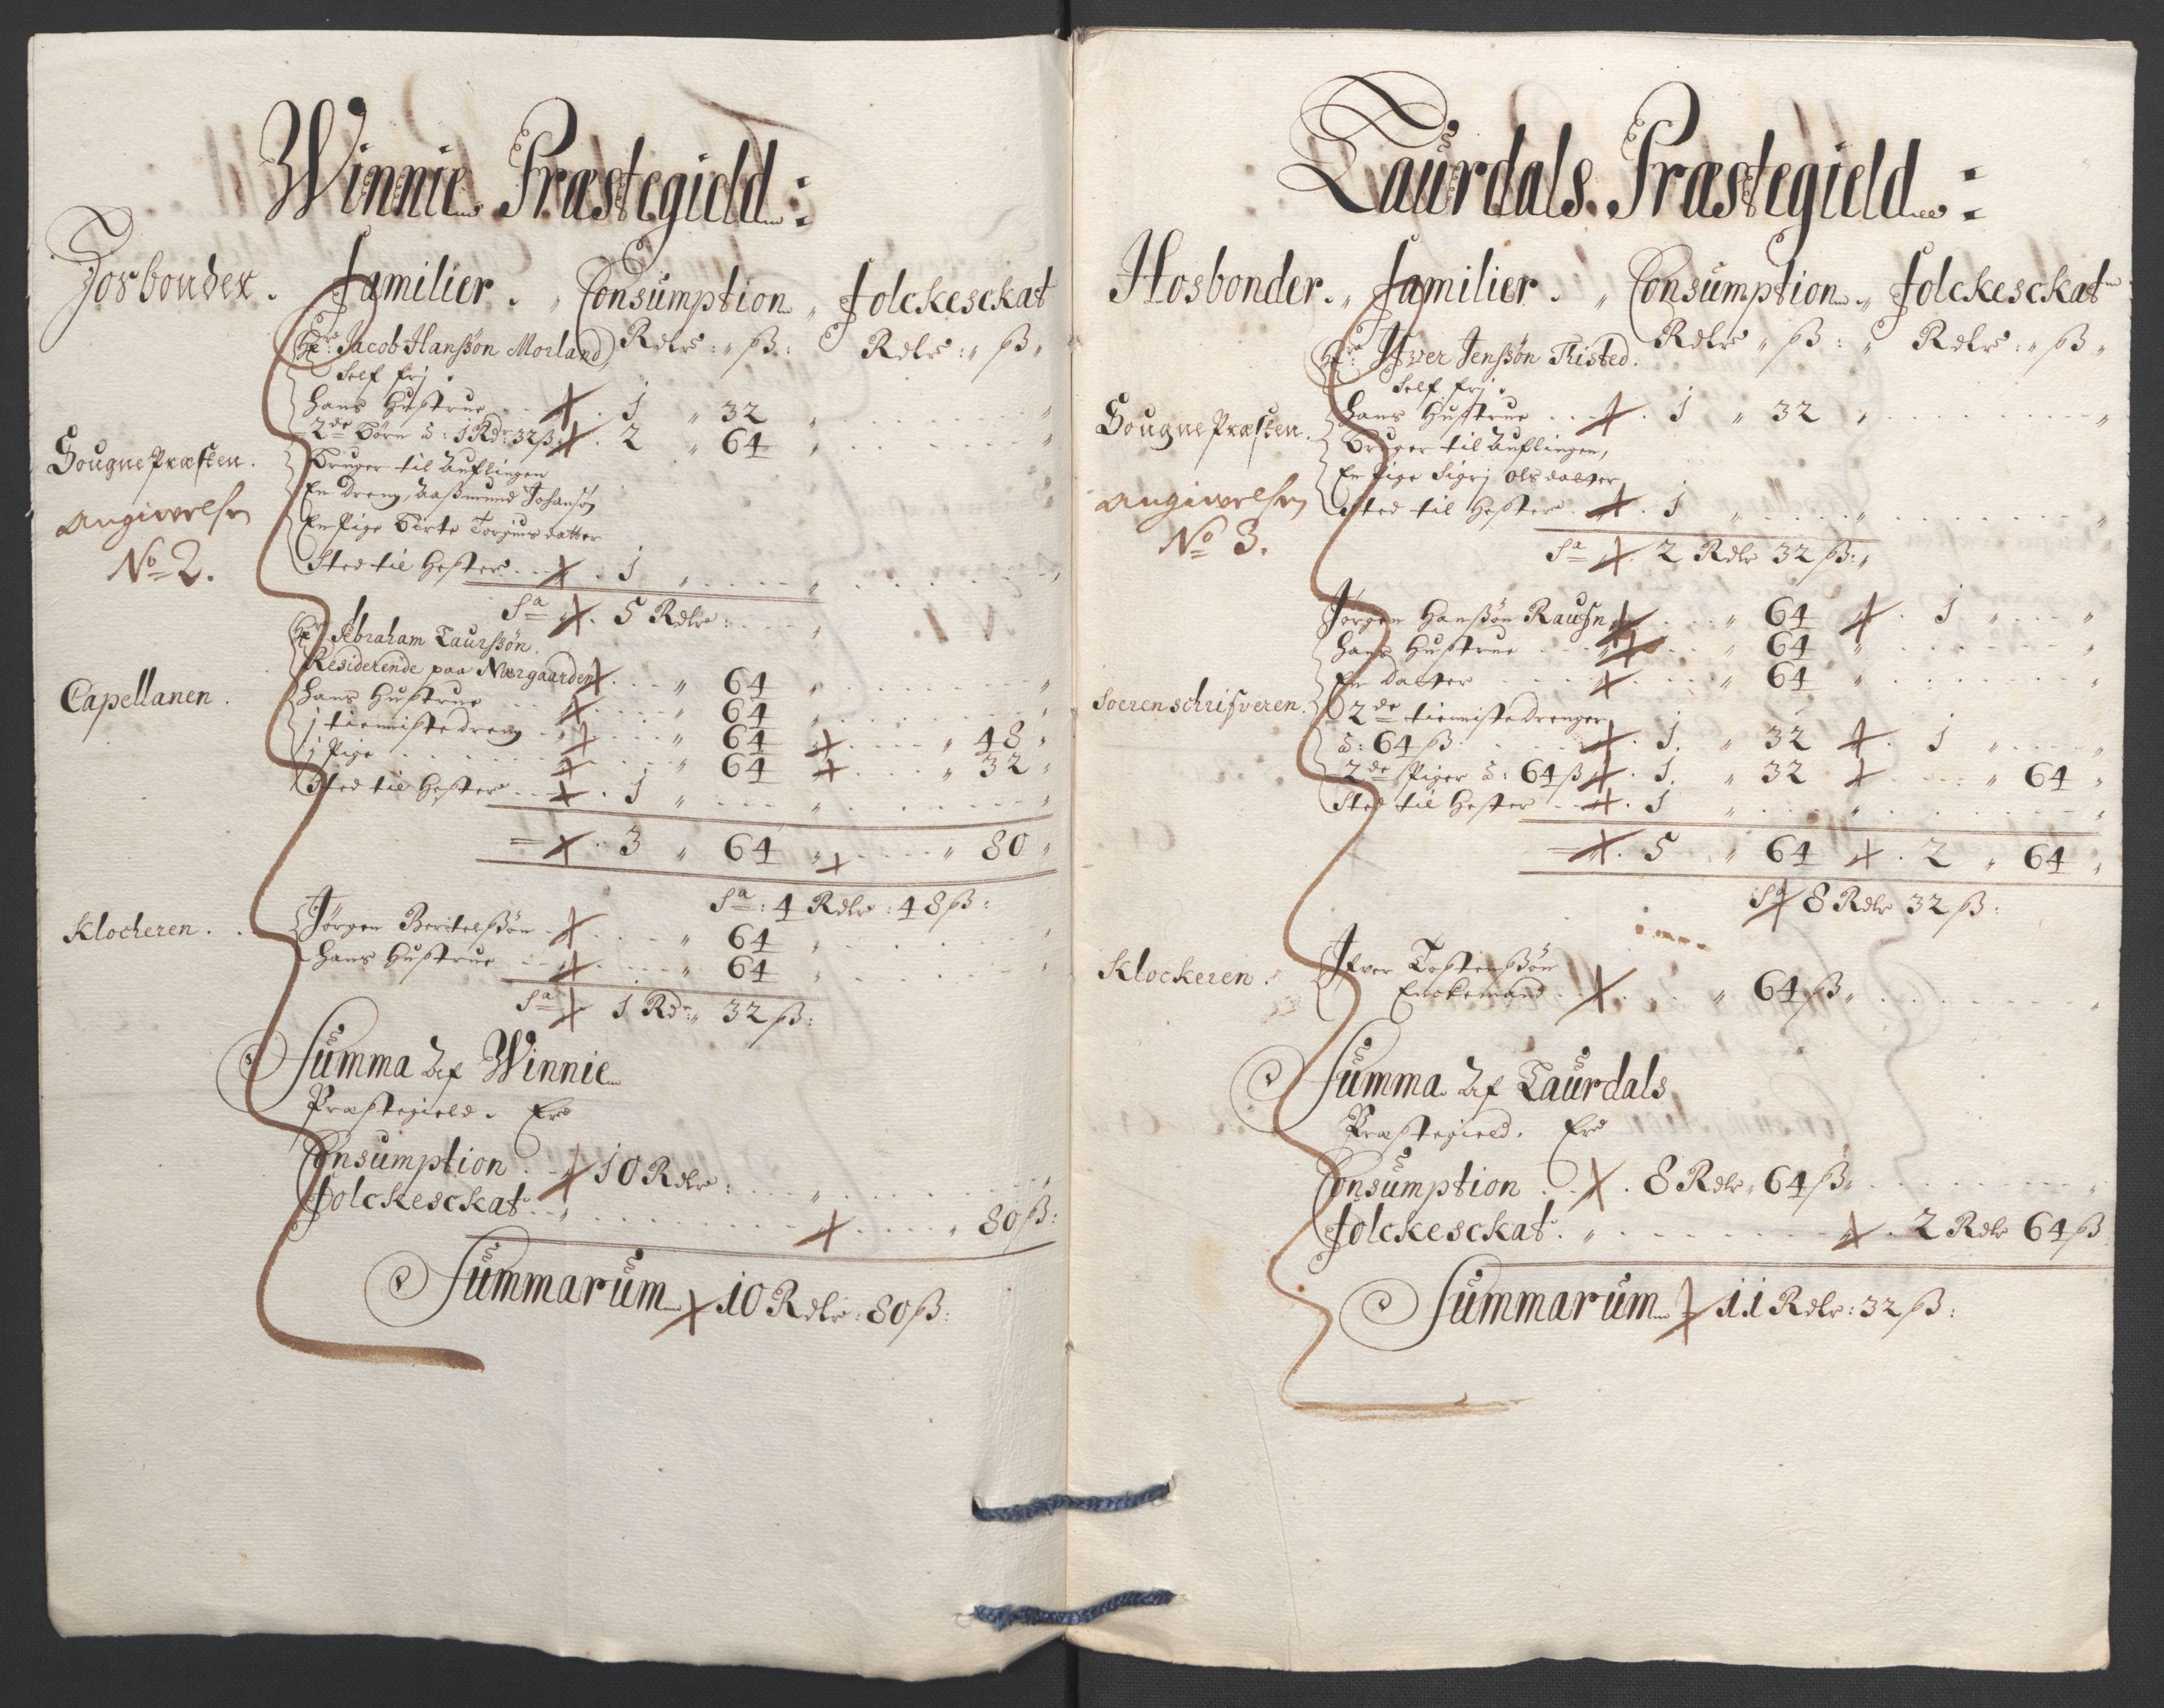 Winnie Præstegield:
Hosbonder. Familier. Consumption Folckesckat
Rdlr: ß: Rdlr: ß
Hr: Jacob Hanßøn Morland
Self frj
Sougne Præsten. hans Hustrue 1 32
2de Børn à: 1 Rdr 32 ß: 2 64
Bruger til Auflingen
Angiwelsen En dreng, Aaßmund Johansøn
No 2. En Pige Birte Torgiursdatter
Sted til Hester 1
Sa 5 Rdlr:
Hr Abraham Laurßøn.
Capellanen. Residerende paa Nørgaarden 64
hans Hustrue 64
j tienniste dreng 64 48
j Pige 64 32
Sted til Hester 1
3 64 80
Sa: 4 Rdlr: 48 ß:
Klockeren. Jørgen Bertelßøn 64
hans Hustrue 64
Sa 1 Rdr 32 ß:
Summa Af Winnie
Præstegield. Er
Consumption 10 Rdlr:
Folckesckat 80 ß:
Summarum 10 Rdlr: 80 ß:
Laurdals Præstegield:
Hosbonder. Familier. Consumption Folckesckat
Rdlr ß: Rdlr: ß
Hr: Iver Jenßøn Tisted.
Self frj
Sougne Præsten. hans Hustrue 1 32
Bruger til Auflingen,
Angiwelsen En Pige Sigrj Olsdatter
No 3. Sted til Hester 1
Sa 2 Rdlr 32 ß:
Jørgen Hanßøn Raufn 64 1
hans Hustrue 64
En datter 64
Sorenschrifveren. 2de tienniste drenger
à: 64 ß: 1. 32 1
2de Piger à: 64 ß 1. 32 64
Sted til Hester 1
5 64 2 64
Sa 8 Rdlr 32 ß:
Klockeren. Ifver Tostenßøn
Enckemand 64 ß
Summa Af Laurdals
Præstegield. Er
Consumption 8 Rdlr 64 ß
Folckesckat. 2 Rdlr 64 ß
Summarum 11 Rdlr: 32 ß: